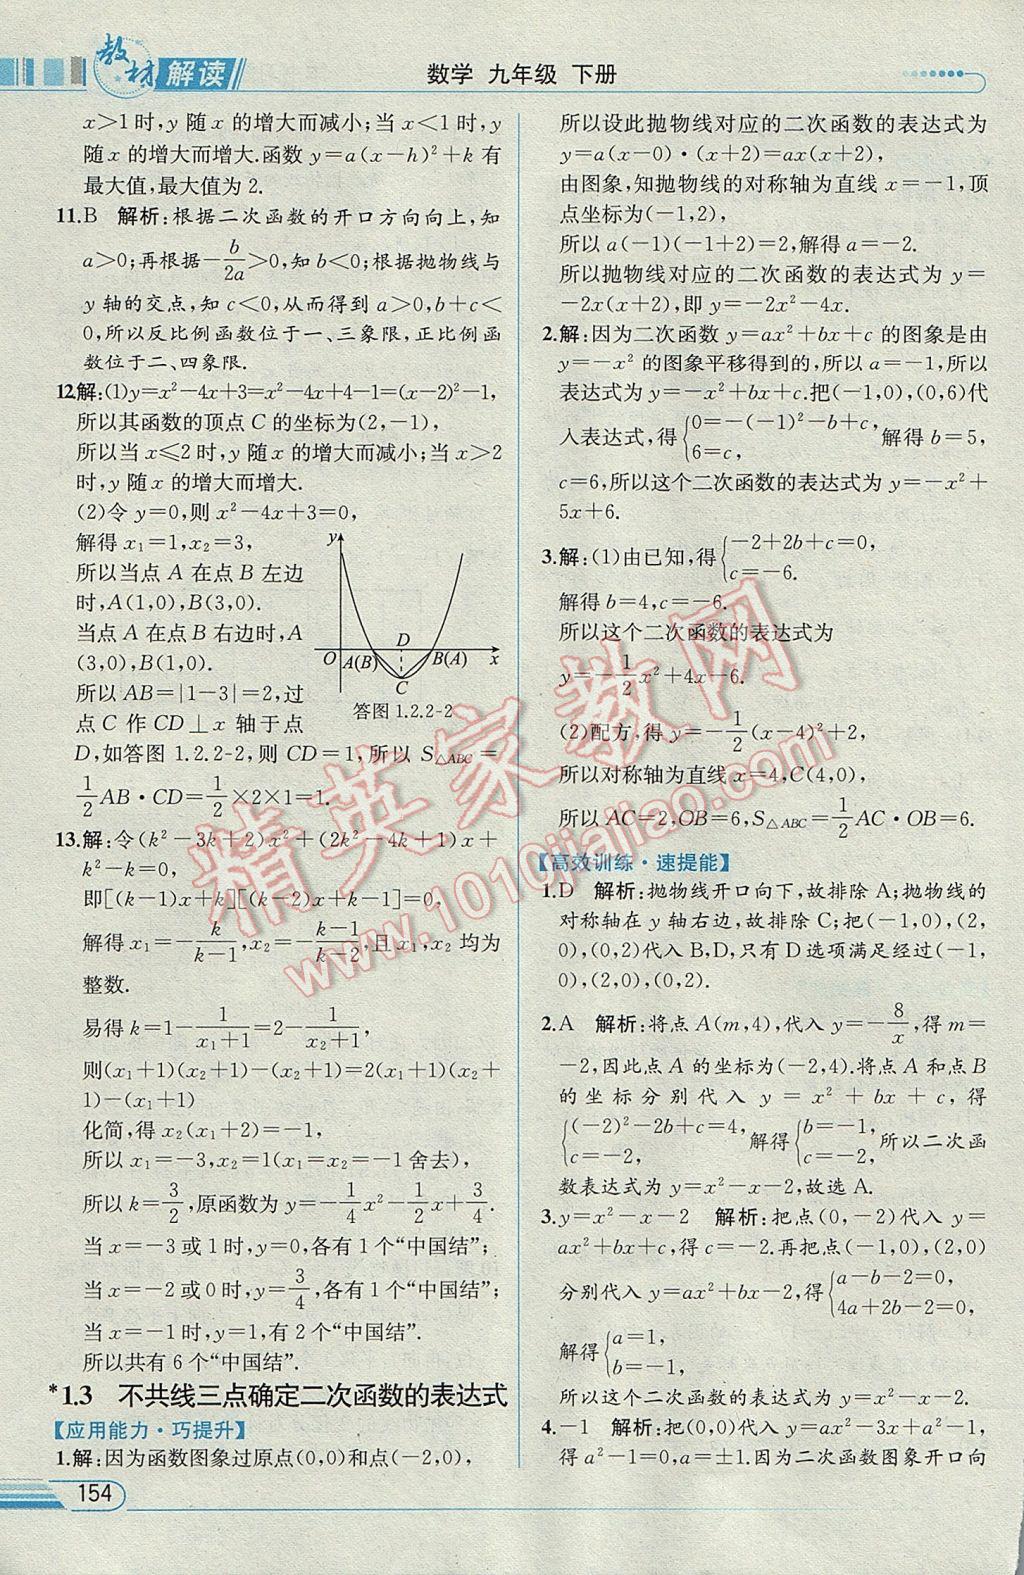 教材解读
数学 九年级 下册
x>1时,y 随x 的增大而减小;当x<1时,y
随x的增大而增大.函数 y=a(x-h)²+k 有
最大值,最大值为2.
11.B 解析:根据二次函数的开口方向向上,知
a>0;再根据-b/2a>0,知b<0;根据抛物线与
y 轴的交点,知c<0,从而得到a>0,b+c<
0,所以反比例函数位于一、三象限,正比例函
数位于二、四象限.
12.解:(1)y=x²-4x+3=x²-4x+4-1=(x-2)²-1,
所以其函数的顶点C的坐标为(2,-1),
所以当x≤2时,y随x的增大而减小;当x>2
时,y随x的增大而增大.
(2)令y=0,则x²-4x+3=0,
解得x₁=1,x₂=3,
所以当点A在点B左边
时,A(1,0),B(3,0).
当点A在点B右边时,A
(3,0),B(1,0).
所以AB=|1-3|=2,过
点C作CD⊥x轴于点
D,如答图1.2.2-2,则CD=1,所以S△ABC=
1/2AB·CD=1/2×2×1=1.
y
D
O A(B) B(A) x
C
答图1.2.2-2
13.解:令(k²-3k+2)x²+(2k²-4k+1)x+
k²-k=0,
即[(k-1)x+k][(k-2)x+k-1]=0,
解得x₁=-k/(k-1),x₂=-(k-1)/(k-2),且x₁,x₂均为
整数.
易得k=1-1/(x₁+1)=2-1/(x₂+1),
则(x₁+1)(x₂+1)-(x₂+1)=2(x₁+1)(x₂+
1)-(x₁+1)
化简,得x₂(x₁+2)=-1,
所以x₁=-3,x₂=1(x₁=x₂=-1舍去),
所以k=3/2,原函数为y=-1/4x²-1/2x+3/4.
当x=-3或1时,y=0,各有1个“中国结”;
当x=-2或0时,y=3/4,各有1个“中国结”;
当x=-1时,y=1,有2个“中国结”.
所以共有6个“中国结”.
*1.3 不共线三点确定二次函数的表达式
【应用能力·巧提升】
1.解:因为函数图象过原点(0,0)和点(-2,0),
所以设此抛物线对应的二次函数的表达式为
y=a(x-0)·(x+2)=ax(x+2),
由图象,知抛物线的对称轴为直线x=-1,顶
点坐标为(-1,2),
所以a(-1)(-1+2)=2,解得a=-2.
所以抛物线对应的二次函数的表达式为y=
-2x(x+2),即y=-2x²-4x.
2.解:因为二次函数y=ax²+bx+c的图象是由
y=-x²的图象平移得到的,所以a=-1,所以
表达式为y=-x²+bx+c.把(-1,0),(0,6)代
入表达式,得{0=-(-1)²-b+c, 6=c, 解得b=5,
c=6,所以这个二次函数的表达式为y=-x²+
5x+6.
3.解:(1)由已知,得{-2+2b+c=0, c=-6.
解得b=4,c=-6.
所以这个二次函数的表达式为
y=-1/2x²+4x-6.
(2)配方,得y=-1/2(x-4)²+2,
所以对称轴为直线x=4,C(4,0),
所以AC=2,OB=6,S△ABC=1/2AC·OB=6.
【高效训练·速提能】
1.D 解析:抛物线开口向下,故排除A;抛物线的
对称轴在y轴右边,故排除C;把(-1,0),(2,
0),(0,2)代入B,D,只有D选项满足经过(-1,
0),(2,0),(0,2).
2.A 解析:将点A(m,4),代入y=-8/x,得m=
-2,因此点A的坐标为(-2,4).将点A和点B
的坐标分别代入y=x²+bx+c,得
{(-2)²-2b+c=4, c=-2, 解得{b=-1, c=-2, 所以二次函
数表达式为y=x²-x-2,故选A.
3.y=x²-x-2 解析:把点(0,-2)代入y=
ax²+bx+c,得c=-2.再把点(-1,0),(2,0)
分别代入y=ax²+bx-2,得{a-b-2=0, 4a+2b-2=0,
解得{a=1, b=-1.
所以这个二次函数的表达式为y=x²-x-2.
4.-1 解析:把(0,0)代入y=ax²-3x+a²-1,
得a²-1=0,a=±1.因为二次函数图象开口向
154
精英家教网
www.1010jiajiao.com